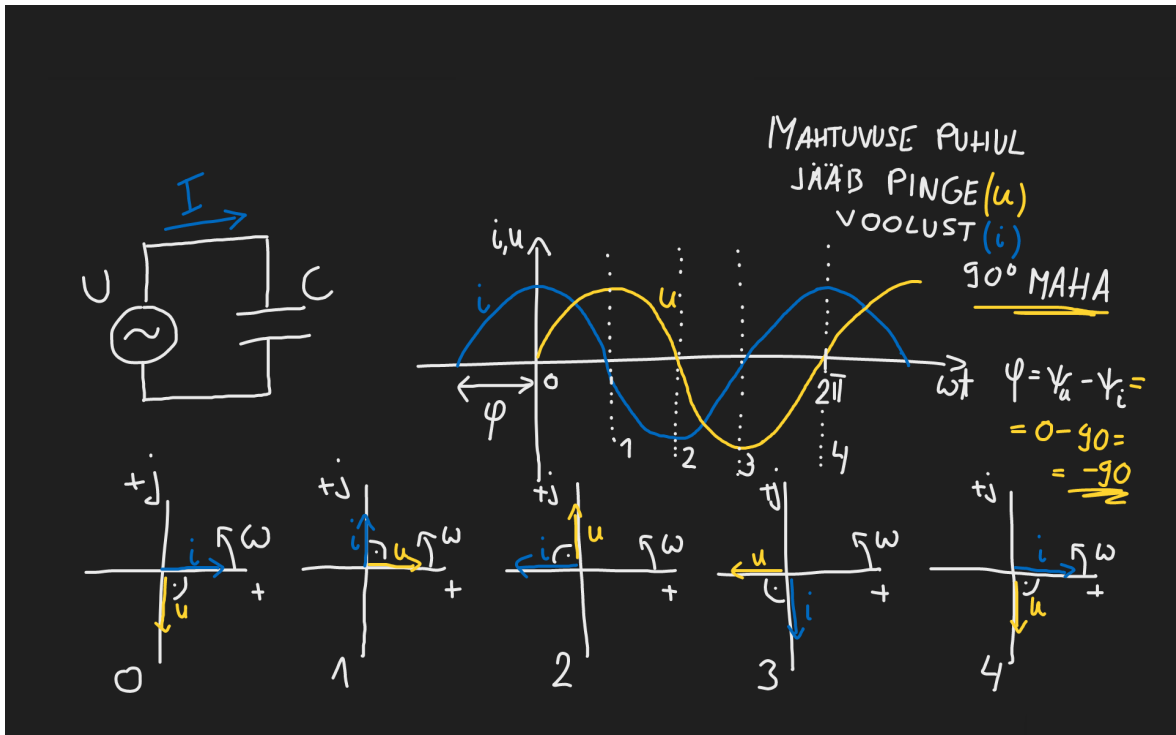 MAHTUVUSE PUHUL
JÄÄB PINGE (u)
VOOLUST (i)
90° MAHA
I
U
C
i,u
i
u
0
φ
2π
ωt
1
2
3
4
φ = ψu - ψi =
= 0 - 90 =
= -90
+j
i
ω
u
+
0
+j
i
u
ω
+
1
+j
u
i
ω
+
2
+j
u
ω
i
+
3
+j
i
ω
u
+
4